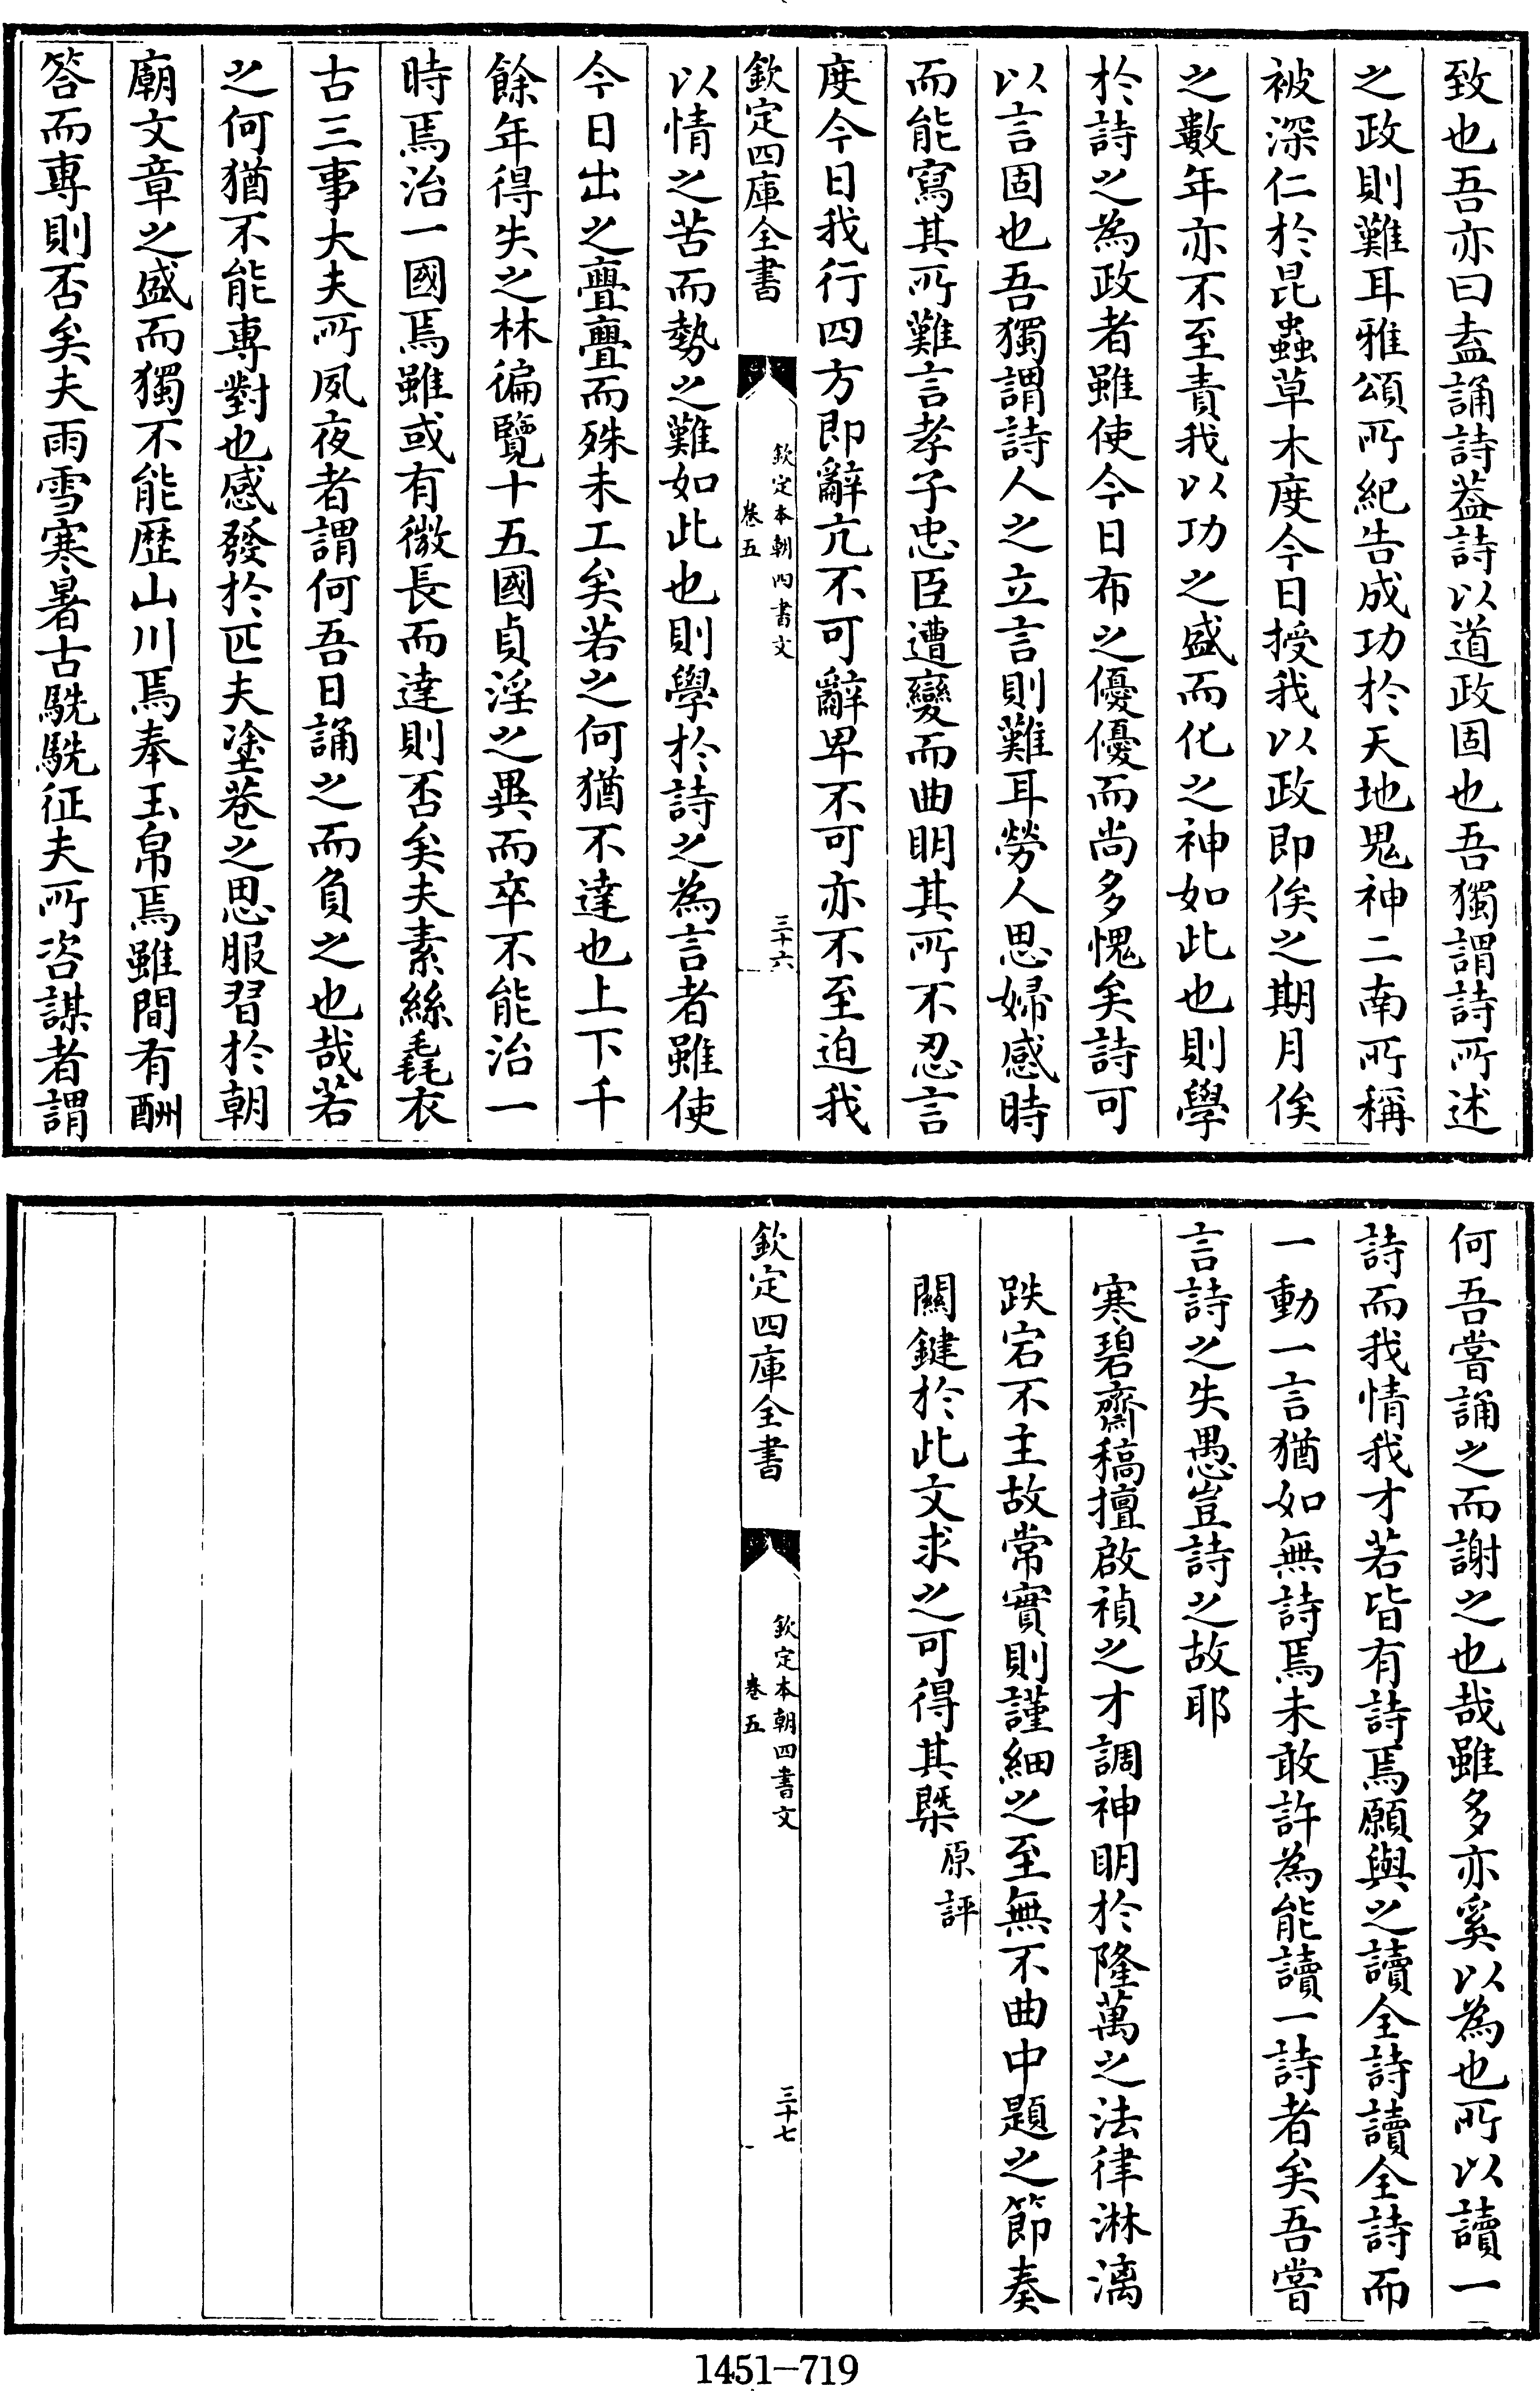 致也吾亦曰盍誦詩葢詩以道政固也吾獨謂詩所述
之政則難耳雅頌所紀告成功於天地鬼神二南所稱
被深仁於昆蟲草木度今日授我以政即俟之期月俟
之數年亦不至責我以功之盛而化之神如此也則學
於詩之為政者雖使今日布之優優而尚多愧矣詩可
以言固也吾獨謂詩人之立言則難耳勞人思婦感時
而能寫其所難言孝子忠臣遭變而曲明其所不忍言
度今日我行四方即辭亢不可辭卑不可亦不至迫我
欽定四庫全書
欽定本朝四書文
卷五
三十六
以情之苦而勢之難如此也則學於詩之為言者雖使
今日出之亹亹而殊未工矣若之何猶不達也上下千
餘年得失之林徧覽十五國貞淫之異而卒不能治一
時焉治一國焉雖或有微長而達則否矣夫素絲毳衣
古三事大夫所夙夜者謂何吾日誦之而負之也哉若
之何猶不能專對也感發於匹夫塗巷之思服習於朝
廟文章之盛而獨不能歴山川焉奉玉帛焉雖間有酬
答而專則否矣夫雨雪寒暑古駪駪征夫所咨謀者謂
何吾嘗誦之而謝之也哉雖多亦奚以為也所以讀一
詩而我情我才若皆有詩焉願與之讀全詩讀全詩而
一動一言猶如無詩焉未敢許為能讀一詩者矣吾嘗
言詩之失愚豈詩之故耶
寒碧齋稿擅啟禎之才調神明於隆萬之法律淋漓
跌宕不主故常實則謹細之至無不曲中題之節奏
關鍵於此文求之可得其槩原評
欽定四庫全書
欽定本朝四書文
卷五
三十七
1451-719